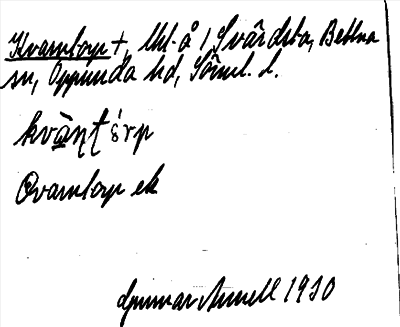 Kvarntorp +, lht. å / Svärdsta, Bettna
sn, Oppunda hd, Söml. l.
kvàɳʈórp
Qvarntorp ek
Gunnar Amnell 1930